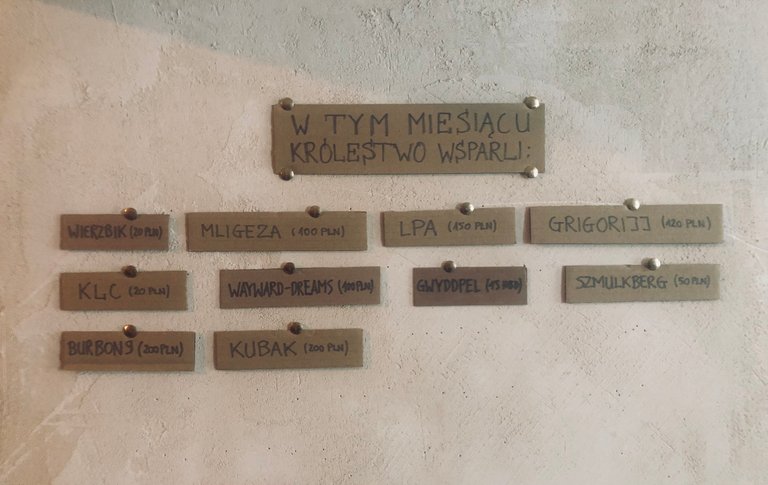 W TYM MIESIĄCU
KRÓLESTWO WSPARLI:
WIERZBIK (20 PLN)
MLIGEZA (100 PLN)
LPA (150 PLN)
GRIGORIJJ (120 PLN)
KLC (20 PLN)
WAYWARD-DREAMS (100 PLN)
GWYDDPEL (15 HBD)
SZMULKBERG (50 PLN)
BURBON9 (200 PLN)
KUBAK (200 PLN)